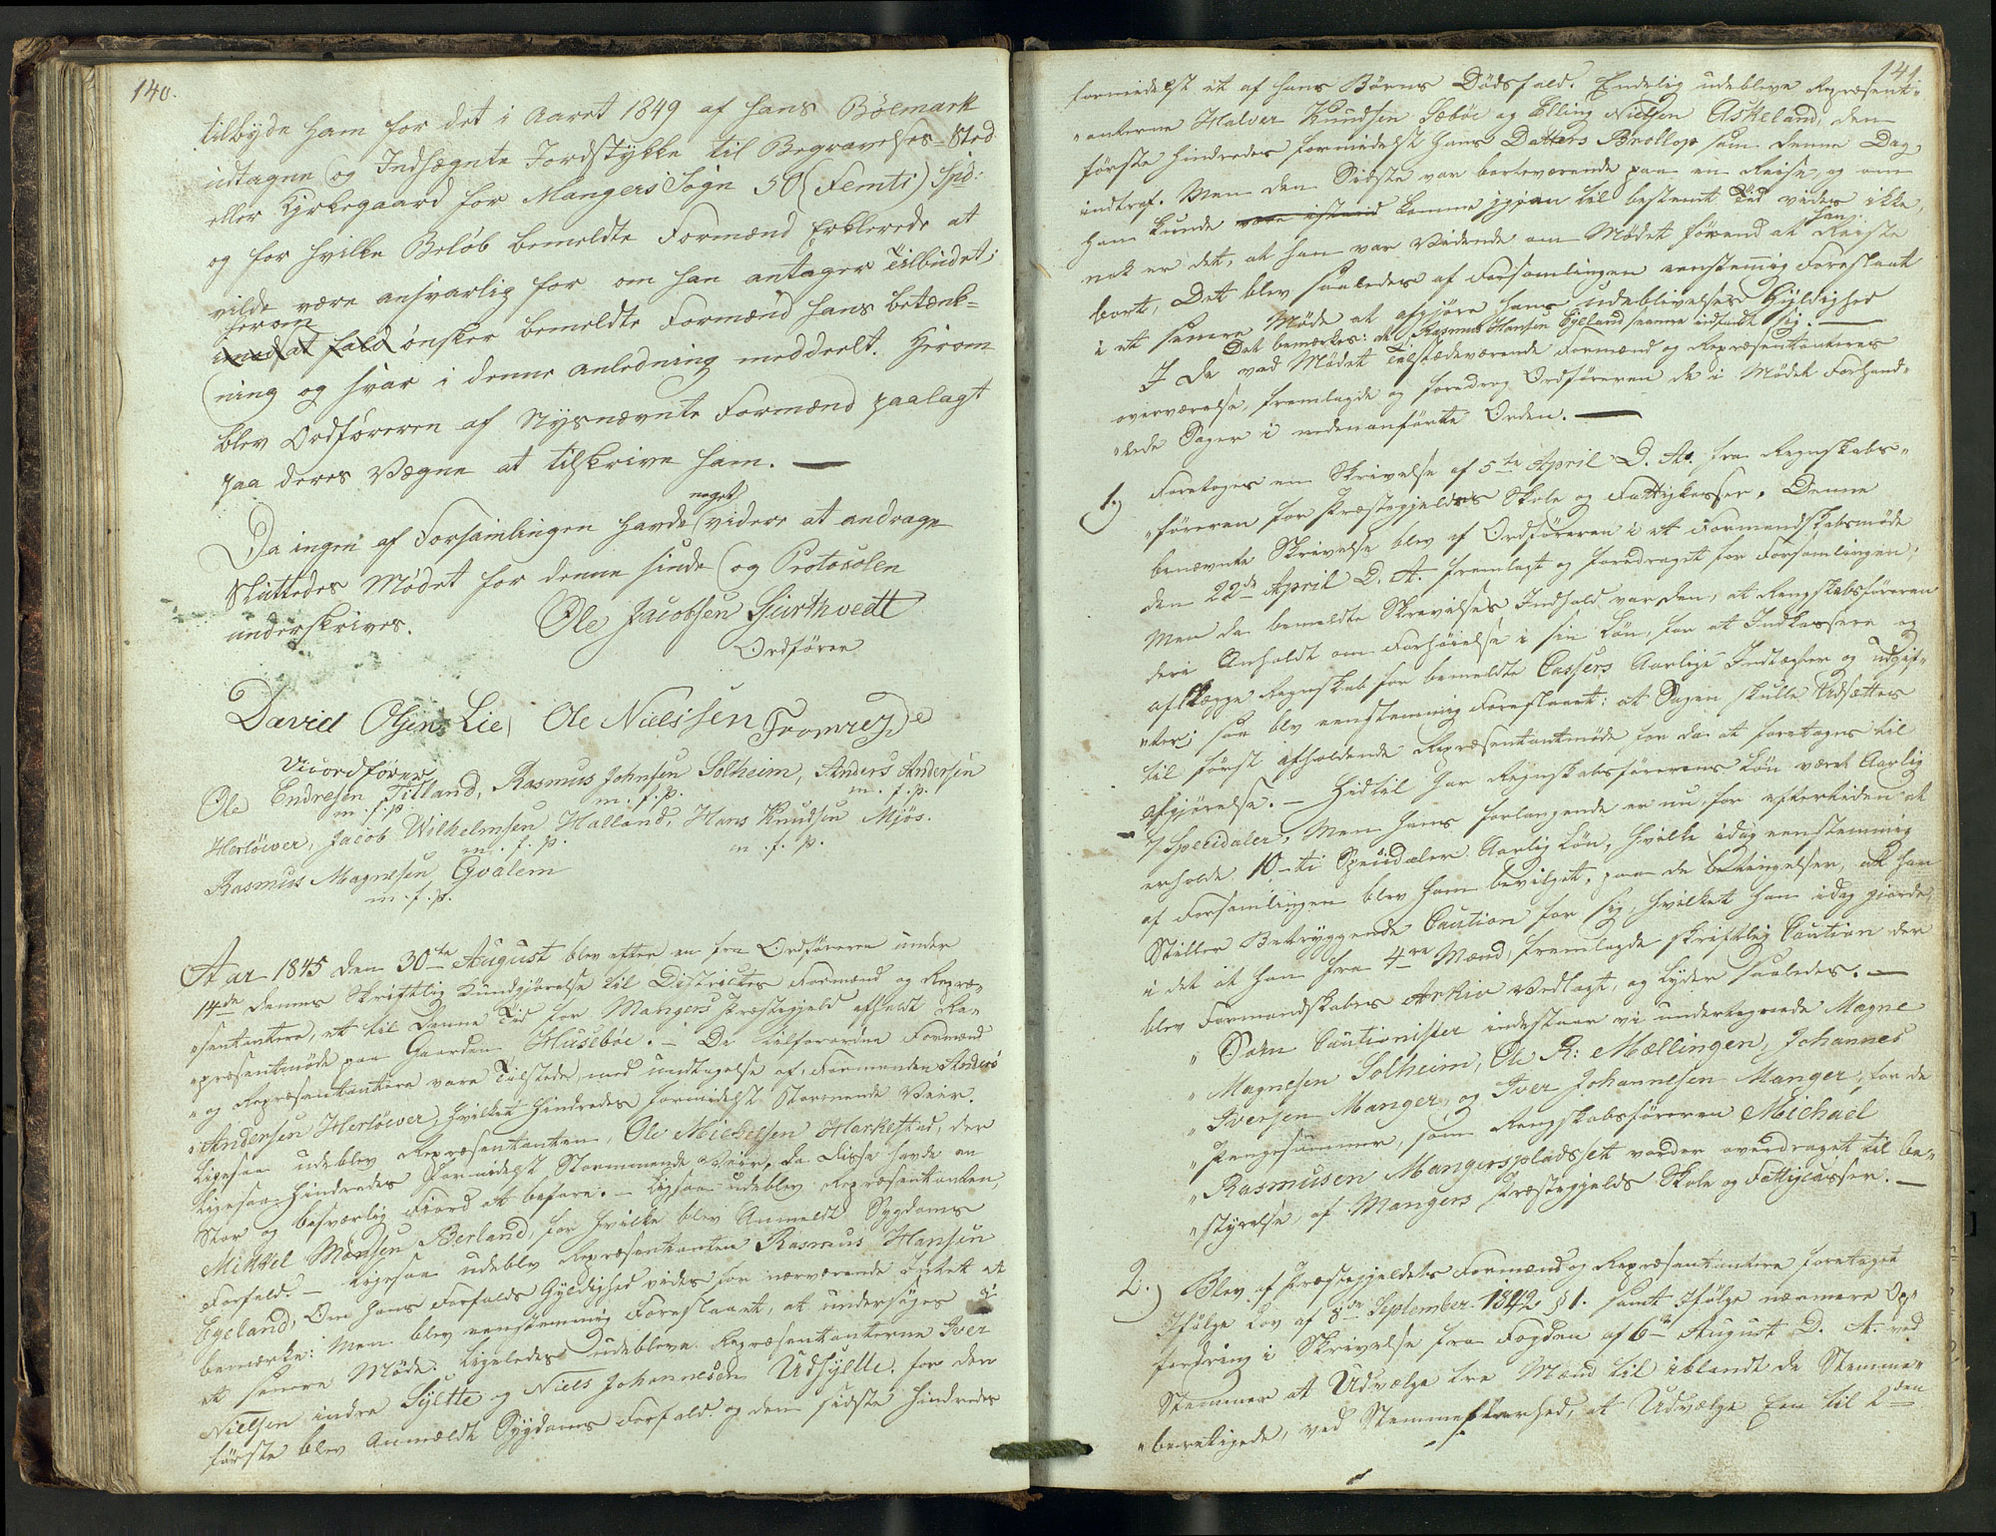 140.
tilbyde ham for det i Aaret 1849 af hans Bøemark
udtagne og Indhægnte Jordstykke til Begravelses-Sted
eller Kirkegaard for Mangers Sogn 50 (Femti) Spd:
og for hvilke Beløb bemeldte Formænd Erklerede at
vilde være ansvarlig for om han antager Tilbudet;
herom
imod at fald ønsker bemeldte Formænd hans betænk-
ning og svar i denne anledning meddeelt. Herom
blev Ordføreren af Nysnævnte Formænd paalagt
paa deres Vægne at tilskrive ham. —
noget
Da ingen af Forsamlingen havde videre at andrage
Sluttedes Mødet for denne sinde og Protocolen
underskrives.
Ole Jacobsen Gjurthvedt
Ordfører
David Olsen Lie, Ole Nielssen Fromrej
Viceordfører
Ole Endresen Titland, Rasmus Johnsen Solheim, Anders Andersen
m. f. p. m. f. p. m. f. p.
Herløwer, Jacob Wilhelmsen Halland, Hans Knudsen Mjøs.
m. f. p. m. f. p.
Rasmus Magnesen Qvalem
m. f. p.
Aar 1845 den 30te August blev efter en fra Ordføreren under
14de dennes Skriftlig Kundgjørelse til Districtets Formænd og Repræ-
„sentantere, et til denne Tid for Mangers Præstegjeld afholdt Re-
„præsentmøde paa Gaarden Husebøe. – De tilforordne Formænd
„og Repræsentantere vare Tilstede, med undtagelse af: Formanden Anders
„Andersen Herløwer, hvilket hindredes formidelst Stormende Veir.
Ligesaa udeblev Repræsentanten, Ole Michelsen Harkestad, der
Ligesaa hindredes formedelst Stormmende Veir, da Disse havde en
Stor og besværlig Fiord at befare. – Ligesaa udeblev Repræsentanten
Mikkel Monsen Berland, for hvilke blev Anmeldt Sygdoms
Forfald. – Ligesaa udeblev Repræsentanten Rasmus Hansen
Egeland, Om hans Forfalds Gyldighed vides for nærværende Intet at
bemærke: Men blev eenstemmig Foreslaaet, at undersøges i
et senere Møde. Ligeledes udebleve Repræsentanterne Iver
Nielsen indre Sylte og Niels Johannesen Udsylte. for den
første blev Anmeldt Sygdoms Forfald. og den sidste hindredes
141.
formedelst et af hans Børns Dødsfald. Endelig udebleve Repræsent-
„anterne Halver Knudsen Sebøe og Elling Nielsen Askeland, den
første hindredes formedelst hans Datters Brøllop som denne Dag
indtraf. Men den Sidste var borteværende paa en Reise, og om
ham kunde være istand komme igjen til bestemt Tid vides ikke,
han
nok er det, at han var Vidende om Mødet førend at Reiste
bort, Det blev saaledes af Forsamlingen eenstemmig Foreslaaet
i et senere Møde at afgjøre hans udeblivelses Gyldighed
Det bemærkes: at Rasmus Hansen Egeland senere indfandt sig. —
I De ved Mødet Tilstædeværende Formænd og Repræsentanteres
overværelse, fremlagde og foredrog Ordføreren de i Mødet Forhand-
„lede Sager i nedenanførte Orden. —
1.) Foretoges en Skrivelse af 5te April D. A. fra Regnskabs-
„føreren for Præstegjeldets Skole og Fattigkasser. Denne
benævnte Skrivelse blev af Ordføreren i et Formandskabsmøde
den 22de April D. A. fremlagt og foredraget for Forsamlingen;
Men da bemeldte Skrivelses Indhold var den, at Rengskabsføreren
deri Anholdt om Forhøielse i sin Løn, for at Indkassere og
aflægge Regnskab for bemeldte Cassers Aarlige Indtægter og udgif-
„ter; saa blev eenstemmig Foreslaaet: at Sagen skulle Udsættes
til først afholdende Repræsentantmøde for da at foretages til
afgjørelse. – Hidtil har Regnskabsførerens Løn været Aarlig
7 Speridaler, Men hans forlangende er nu for eftertiden at
erholde 10-ti Speudaler Aarlig Løn, hvilke idag eenstemmig
af Forsamlingen blev ham bevilget, paa de betingelser, at han
Stiller Betryggende Caution for sig, hvilket han idag gjorde,
i det at han fra 4re Mænd, fremlagde skriftlig Caution der
blev Formandskabets Arkiv Vedlagt, og lyder saaledes. —
„Som Cautionister indestaar vi undertegnede Magne
„Magnesen Solheim, Ole R: Mællingen, Johannes
„Iversen Manger, og Iver Johannesen Manger, for de
„Pengesummer, som Rengskabsføreren Michael
„Rasmusen Mangersplads, sæt vorder overdraget til be-
„styrelse, af Mangers Præstegjelds Skole og Fattigcasser. —
2.) Blev af Præstegjeldets Formænd og Repræsentantere foretaget
Ifølge Lov af 8de September 1842 § 1. samt Ifølge nærmere Op-
fordring i Skrivelse fra Fogden af 6te August D. A. ved
Stemmer at Udvælge tre Mænd til iblandt de Stemme-
„berettigede, ved Stemmefleerhed, at Udvælge Een til 2den